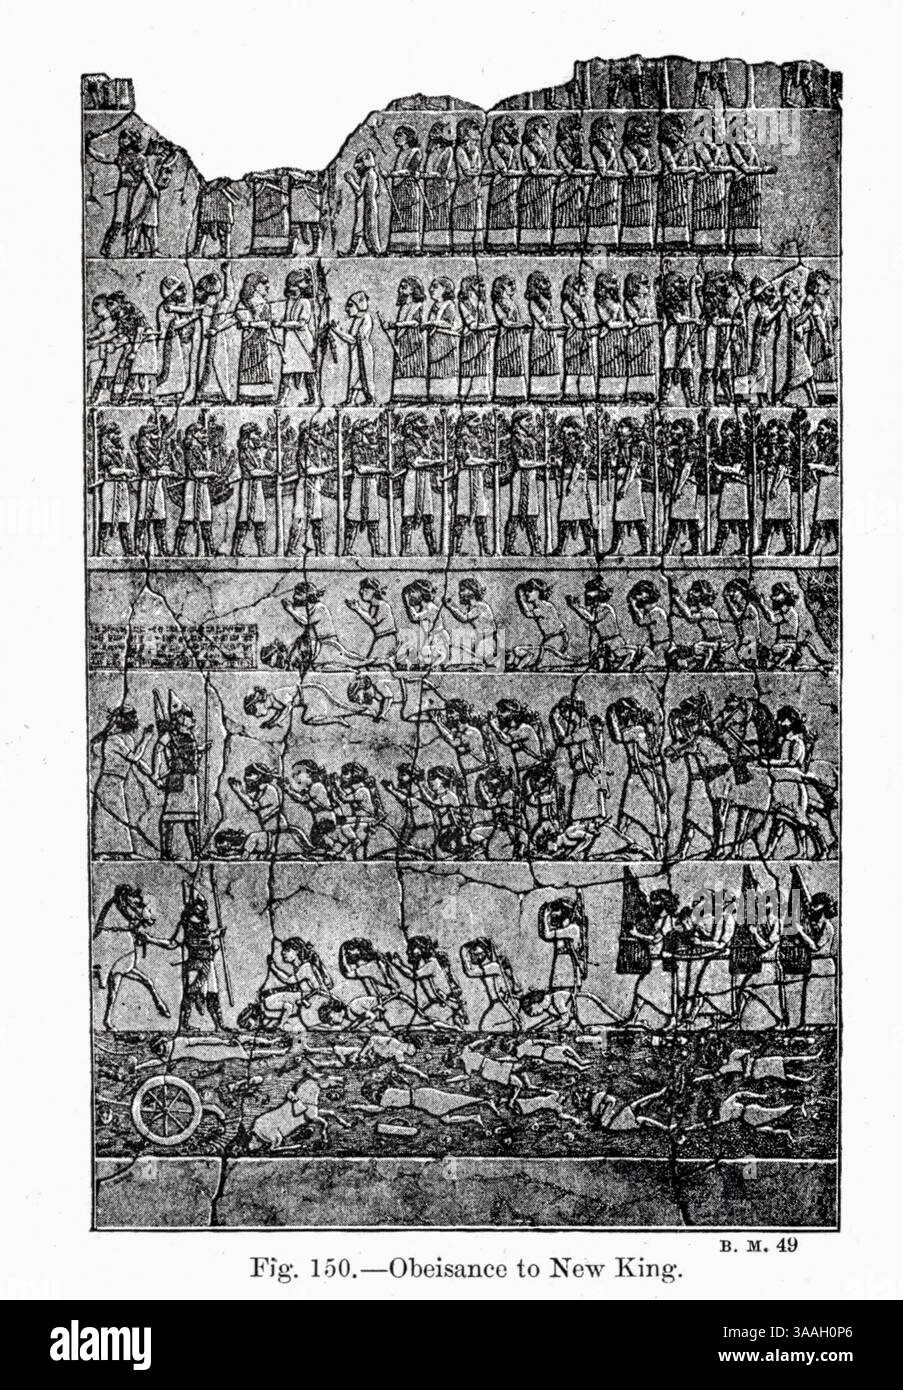 B. M. 49
Fig. 150.—Obeisance to New King.
alamy
Image ID: 3AAH0P6
www.alamy.com